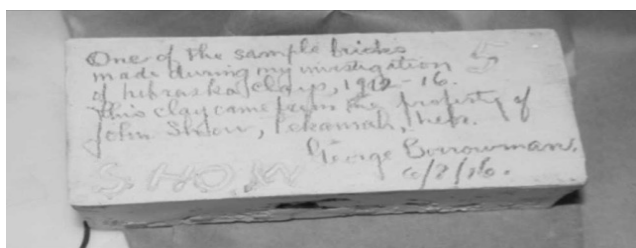 One of the sample bricks
made during my investigation
of Nebraska Clays, 1912-16.
This clay came from the property of
John Show, Tekamah, Nebr.
George Borrowman.
6/2/16.
5
SHOW